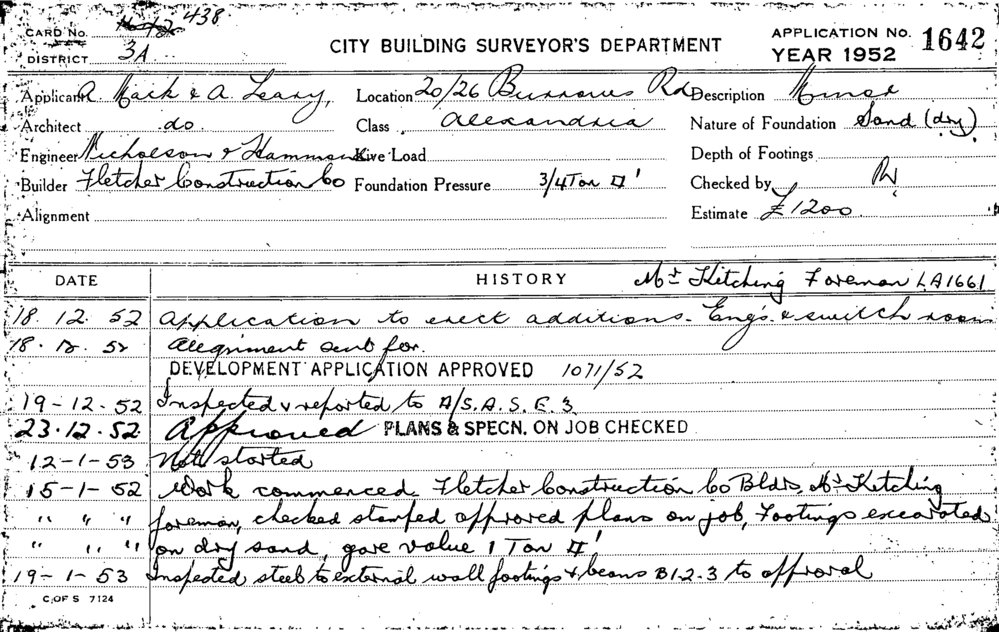 CARD No. 438
DISTRICT 3A
CITY BUILDING SURVEYOR'S DEPARTMENT
APPLICATION No. 1642
YEAR 1952
Applicant A. Mack & A. Leary, Location 20/26 Burrows Rd Description Minor
Architect do. Class Alexandria Nature of Foundation Sand (dry)
Engineer Nicholson & Hammond Live Load Depth of Footings
Builder Fletcher Construction Co Foundation Pressure 3/4 Ton □' Checked by
Alignment Estimate £1200
DATE HISTORY Mr Kitching Foreman LA1661
18. 12. 52 Application to erect additions - Eng's. & switch room
18. 12. 52 Alignment sent for.
DEVELOPMENT APPLICATION APPROVED 1071/52
19-12-52 Inspected & reported to A/S.A.S.E.3
23.12.52 Approved PLANS & SPECN. ON JOB CHECKED
12-1-53 Not started
15-1-52 Work commenced. Fletcher Construction Co Bldrs, Mr Kitching
" " " foreman, checked stamped approved plans on job, Footings excavated
" " " on dry sand, gave value 1 Ton □'
19-1-53 Inspected steel to external wall footings & beams B1-2-3 to approval
C. OF S 7124